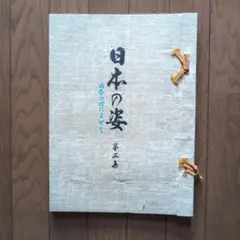 日本の姿
第三集